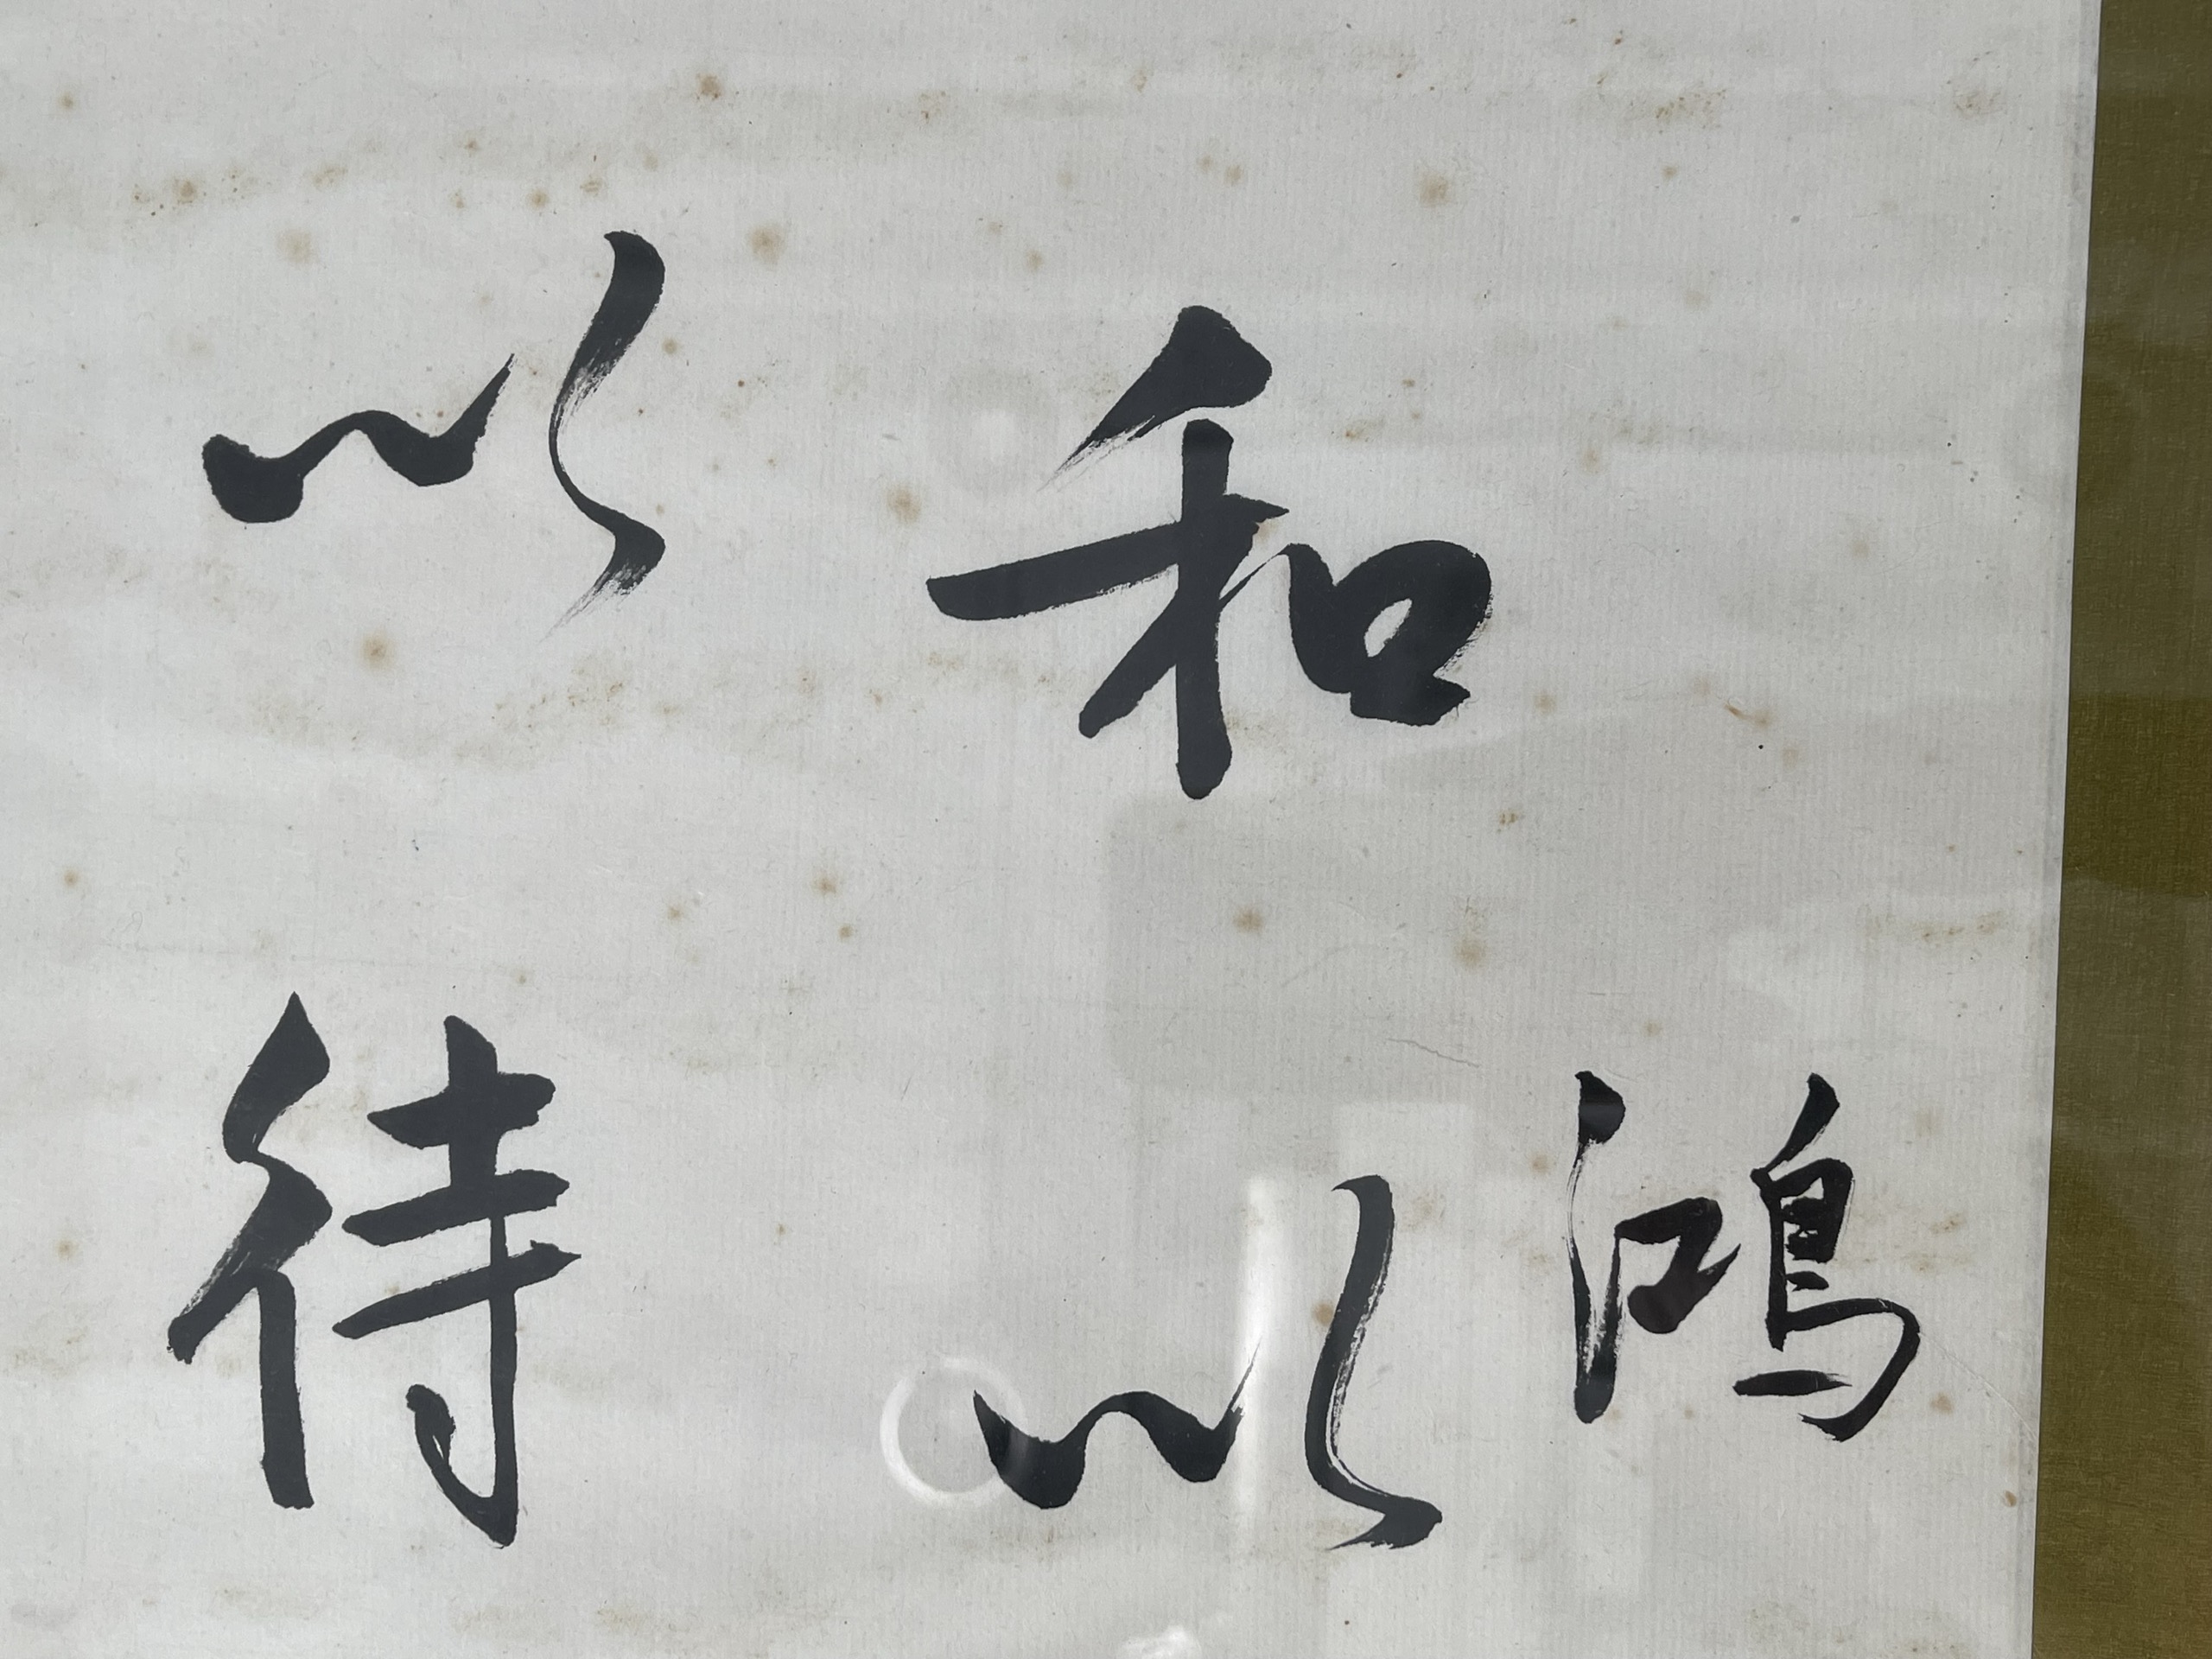 鴻
和以
以待